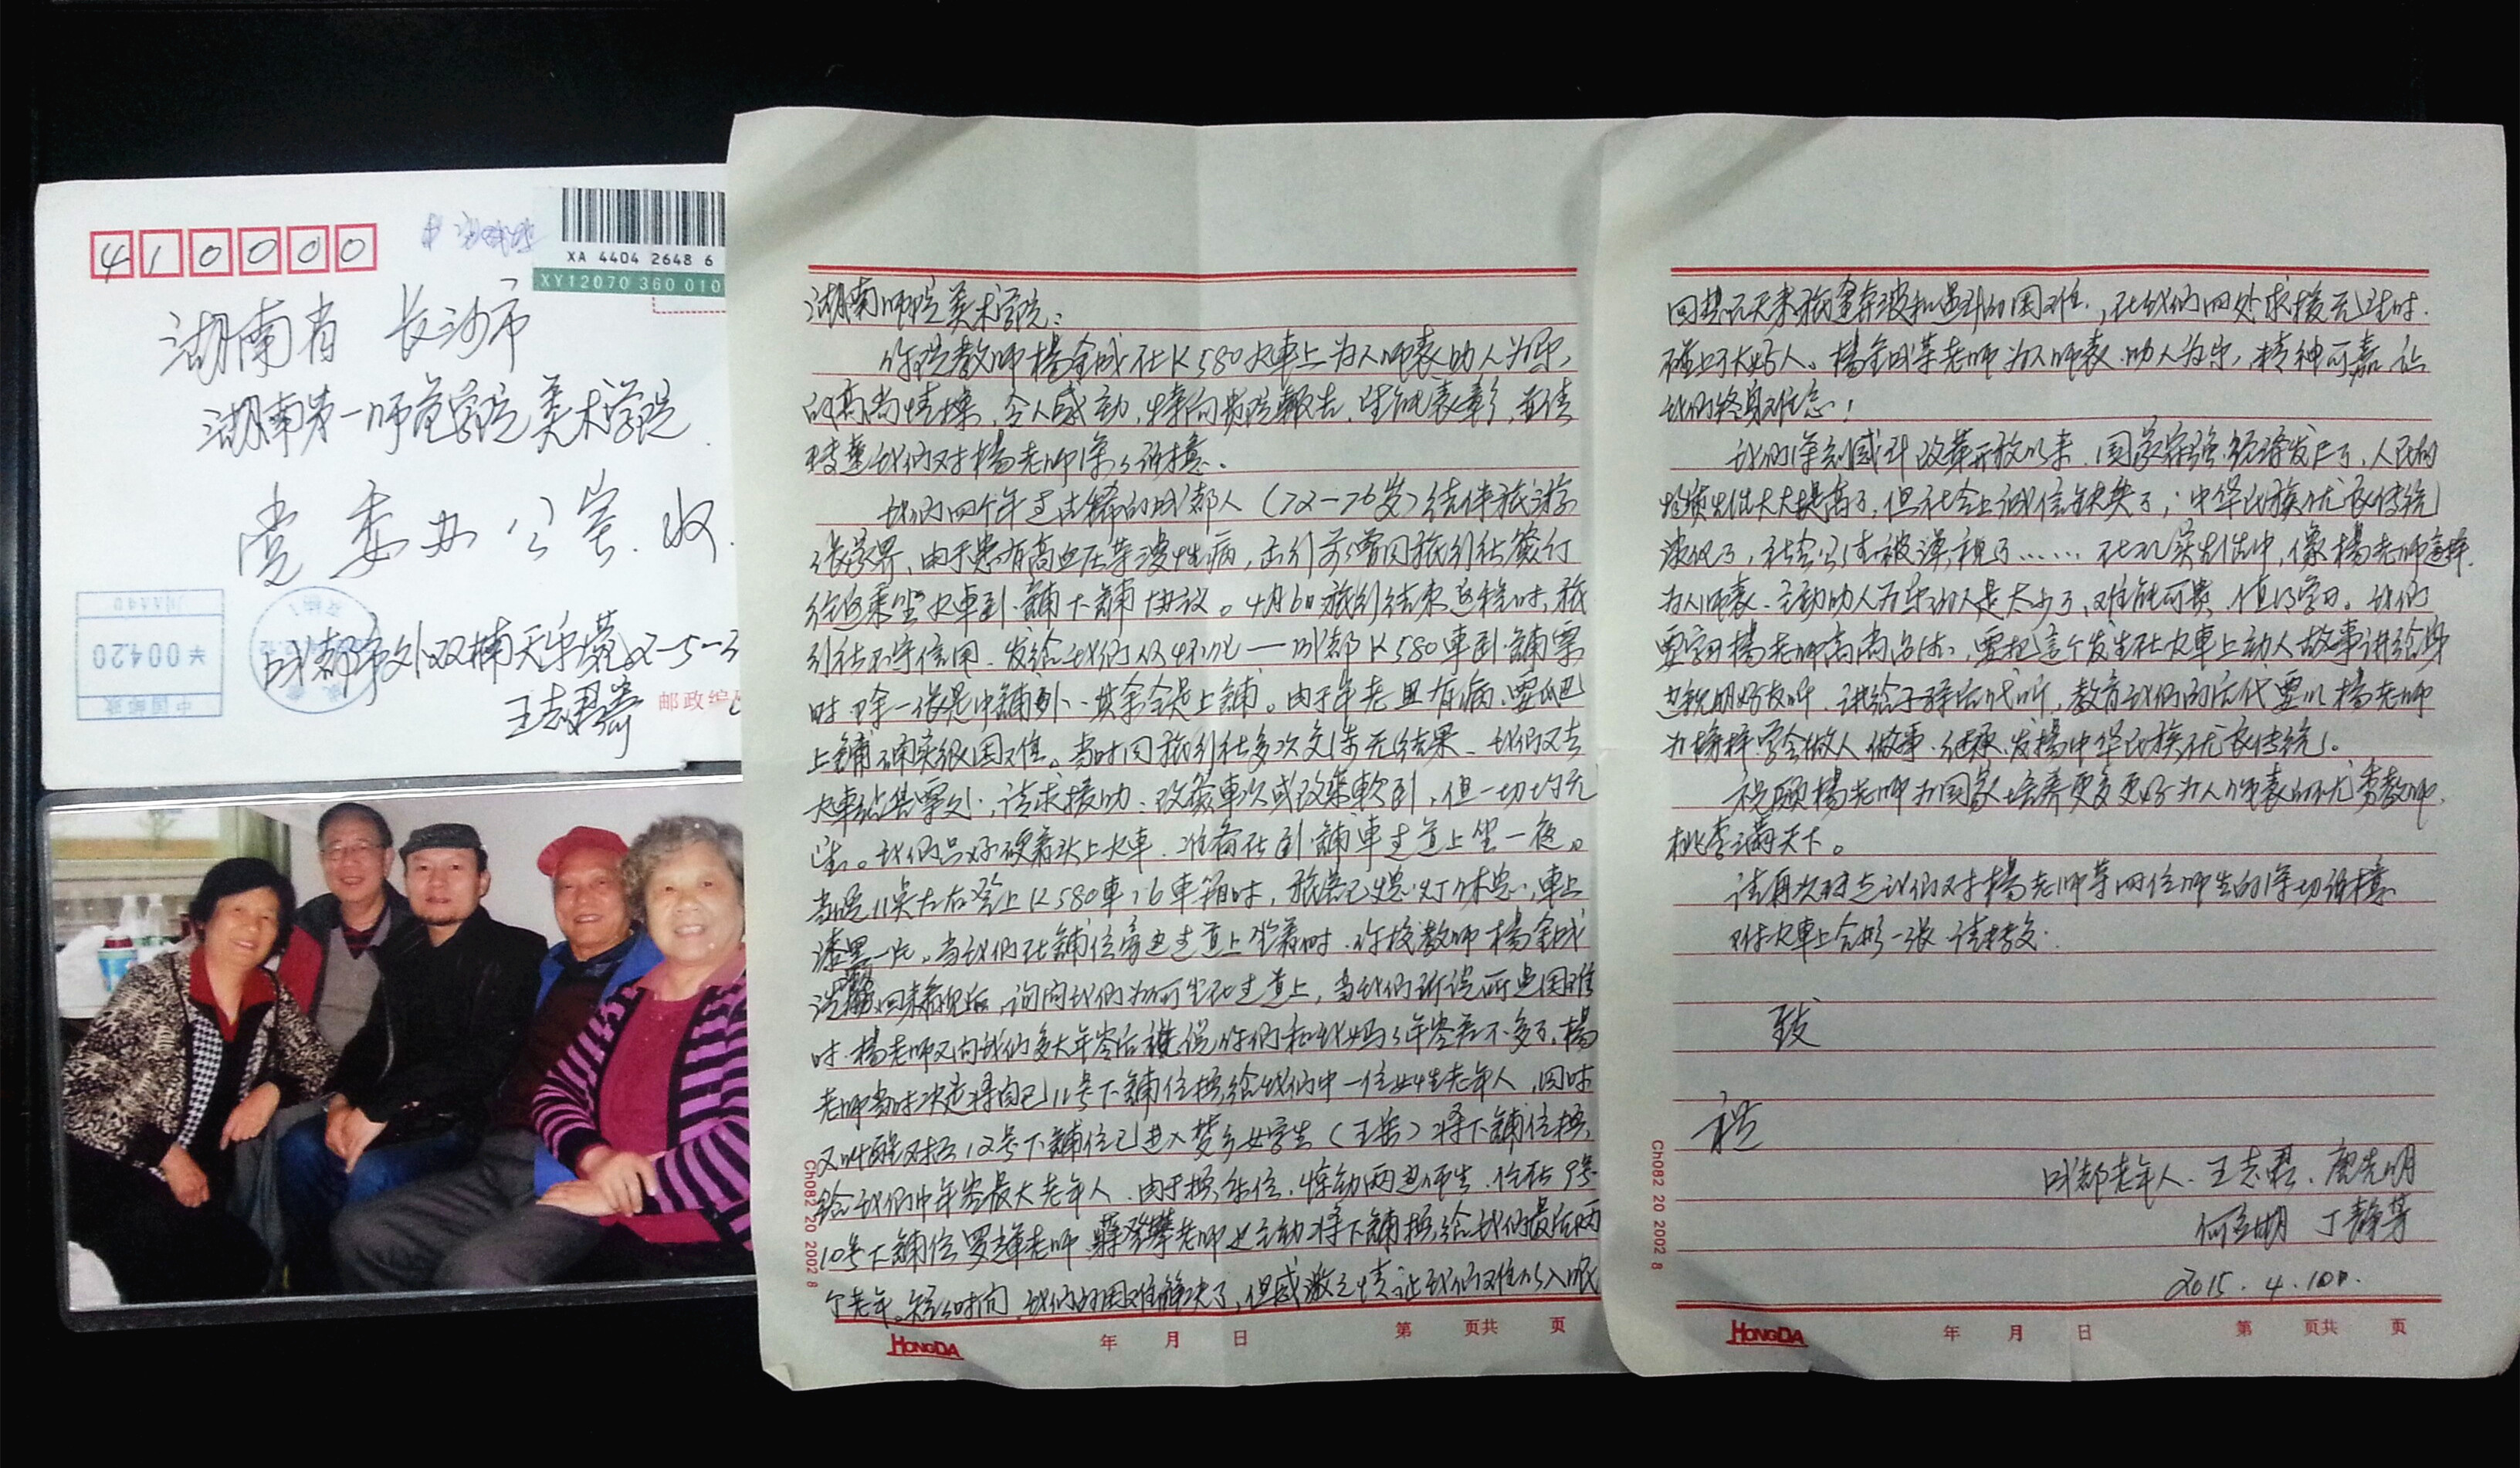 410000
XA 4404 2648 6
XY12070 360 010
湖南省 长沙市
湖南第一师范学院美术学院
党委办公室 收
中国邮政
￥00420
成都市外双楠天乐苑2-5-3
邮政编
湖南师院美术学院：
你院教师楊金成在K580火車上为人师表助人为乐
的高尚情操，令人感动，特向贵院報告，望能表彰，并请
轉達我们对楊老师深深谢意。
我们四个年过古稀的成都人（72—76岁）结伴旅游
张家界，由于患有高血压等慢性病，出行前曾同旅行社簽订
往返乘坐火車卧鋪下鋪协议。4月6日旅行结束返程时，旅
行社不守信用，发给我们从 — 成都K580車卧鋪票
时，除一张是中鋪外，其余全是上鋪。由于年老且有病，要爬
上鋪确实很困难。当时同旅行社多次交涉无结果，我们又去
火車站售票处，请求援助，改簽車次或改乘軟卧，但一切均无
法。我们只好硬着头上火車，准备在卧鋪車过道上坐一夜。
当晚11点左右登上K580車16車箱时，旅客已熄灯休息，車上
漆黑一片。当我们在鋪位旁边过道上坐着时，你校教师楊金成
洗漱回来看见后，询问我们为何坐在过道上，当我们诉说所遇困难
时，楊老师又问我们多大年岁后就说你们和我妈妈年岁差不多了，楊
老师当时决定将自己11号下鋪位换给我们中一位女性老年人，同时
又叫醒对面12号下鋪位已进入梦乡女学生（王苗）将下鋪位换
给我们中年岁最大老年人，由于换鋪位，惊动两边师生，住在9号
10号下鋪位罗 老师 蘇 老师也主动将下鋪换给我们最后两
个老年。短短时间，我们的困难解决了，但感激之情让我们难以入眠
HONGDA
年 月 日 第 页共 页
Ch082 20 2002 8
回想几天来旅途奔波和遇到的困难，在我们四处求援无法时，
碰上了大好人。楊金成等老师为人师表，助人为乐，精神可嘉，让
我们终身难忘！
我们深刻感到改革开放以来，国家富强，经济发展了，人民的
物质生活大大提高了，但社会上诚信缺失了，中华民族优良传统
淡化了，社会公德被漠視了……在现实生活中，像楊老师這样
为人师表、主动助人为乐的人是太少了，难能可贵，值得学习。我们
要学习楊老师高尚品德，要把這个发生在火車上动人故事讲给身
边親朋好友听，讲给子孫后代听，教育我们的后代要以楊老师
为榜样，学会做人做事，继承、发楊中华民族优良传统。
祝願楊老师为国家培养更多更好为人师表的优秀教师，
桃李满天下。
请再次转达我们对楊老师等两位师生的深切谢意
附火車上合影一张，请转交。
致
礼
成都老年人：王志君、唐光明
何立明 丁静芳
2015.4.10日.
HONGDA
年 月 日 第 页共 页
Ch082 20 2002 8